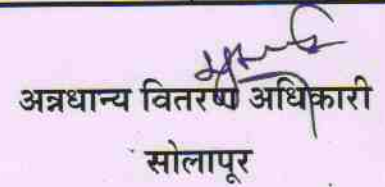 अन्नधान्य वितरण अधिकारी
सोलापूर